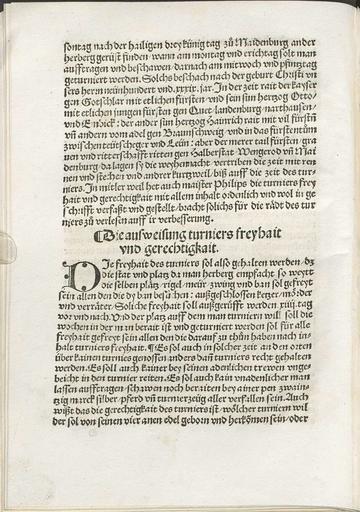 sontag nach der hailigen drey künig tag zů Maidenburg an der
herberg gerüst finden wann am montag vnd erichtag solt man
aufftragen vnd beschawen / darnach am mitwoch vnd pfintztag
geturniert werden. Solchs beschach nach der geburt Christi vn
sers hern neünhundert vnd .xxxix. jar. In der zeit rait der kayser
gen Gotschlar mit etlichen fürsten vnd sein sun hertzog Otto
mit etlichen jungen fürsten gen Quet landenburg / narthausen /
vnd Einbick : der ander sun hertzog Hainrich rait mit vil fürstñ
vñ andern vom adel gen Braunschweig / vnd in das fürstentům
zwischen teütscheger vnd Leün: aber der merer tail fürsten / gra
uen vnd ritterschafft ritten gen Halberstat / Wengerod vñ Mai
denburg / da lagen sy die weyhenacht / vertriben die zeit mit ren
nen vnd stechen vnd ander kurtzweil / biß auff die zeit des tur-
niers. In mitler weil het auch maister Philips die turniers frey
hait vnd gerechtigkait mit allem inhalt ordenlich vnd wol in ge
schrifft verfaßt vnd gestellt / bracht solichs für die rådt des tur
niers zů verlesen auff ir verbesserung.
Die ausweisung turniers freyhait
vnd gerechtigkait.
DIe freyhait des turniers sol also gehalten werden / dz
die stat vnd platz da man herberg empfacht so weytt
die selben plåtz / rigel / meür / zwing vnd ban sol gefreyt
sein allen den die dy ban besůchen : außgeschlossen ketzer / mörder
vnd verråter. Soliche freyhait soll außgerüfft werden xiiij. tag
vor vnd nach. Vnd der platz auff dem man turniern will soll die
wochen in der man berait ist vnd geturniert werden sol für alle
freyhait gefreyt sein allen den die darauf zů thůn haben nach in-
halt turniers freyhait. ¶ Es sol auch in solicher zeit an den orten
über kainen turniers genossen anders dañ turniers recht gehalten
werden. Es soll auch kainer bey seinen adenlichen trewen vnge-
beicht in den turnier reiten. Es sol auch kain vnadenlicher man
lassen aufftragen / schawen noch beraiten bey ainer pen zwain-
tzig marck silber / pferd vñ turnerzeüg aller verfallen sein. Auch
wißt das die gerechtigkait des turniers ist / wölcher turniern wil
der sol von seinen vier anen edel geborn vnd herkömen sein / oder